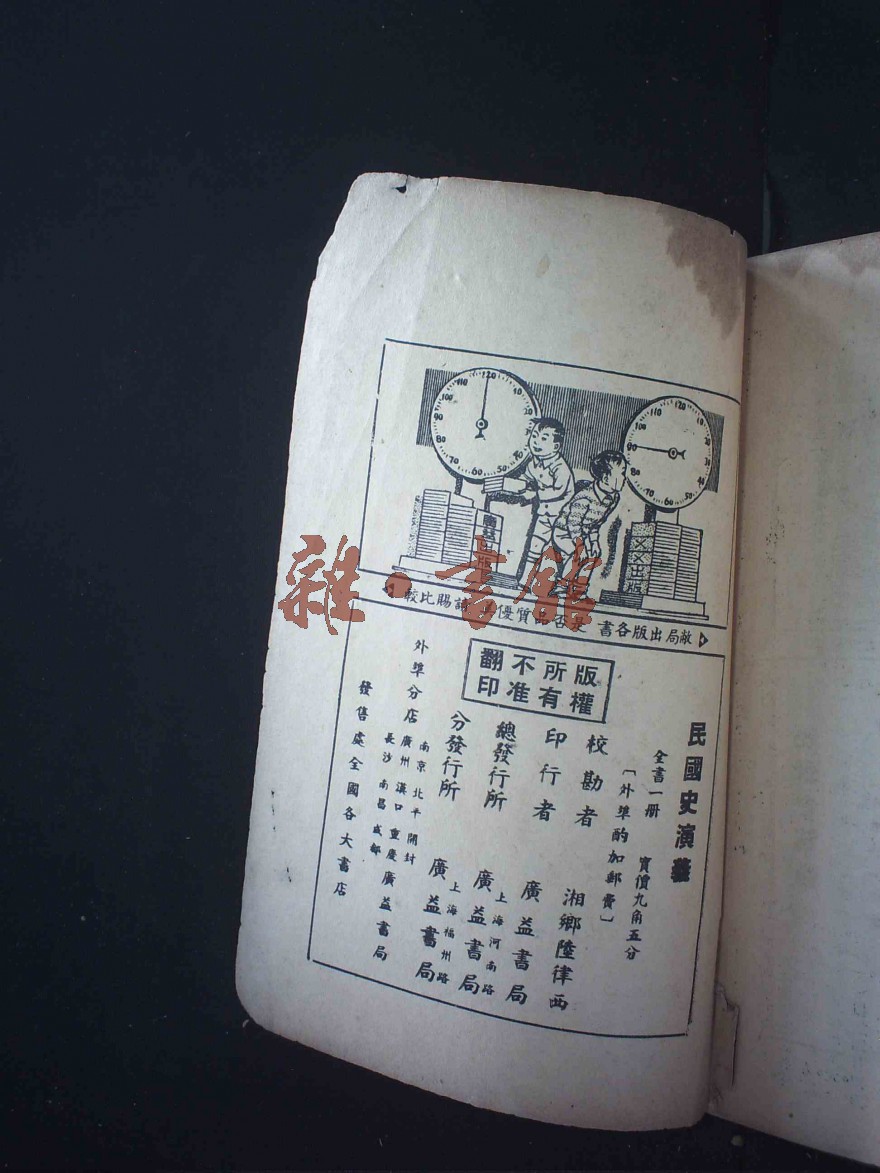 120
110
10
100
20
90
30
80
40
70
50
60
廣益出版
120
110
10
100
20
90
30
80
40
70
50
60
××出版
敝局出版各書 是否品質優良 請賜比較
版權所有
不准翻印
民國史演義
全書一冊 實價九角五分
〔外埠酌加郵費〕
校勘者 湘鄉陸律西
印行者 廣益書局
總發行所 上海河南路 廣益書局
分發行所 上海福州路 廣益書局
外埠分店 南京 北平 開封 廣州 漢口 重慶 長沙 南昌 成都 廣益書局
發售處 全國各大書店
雜·書館